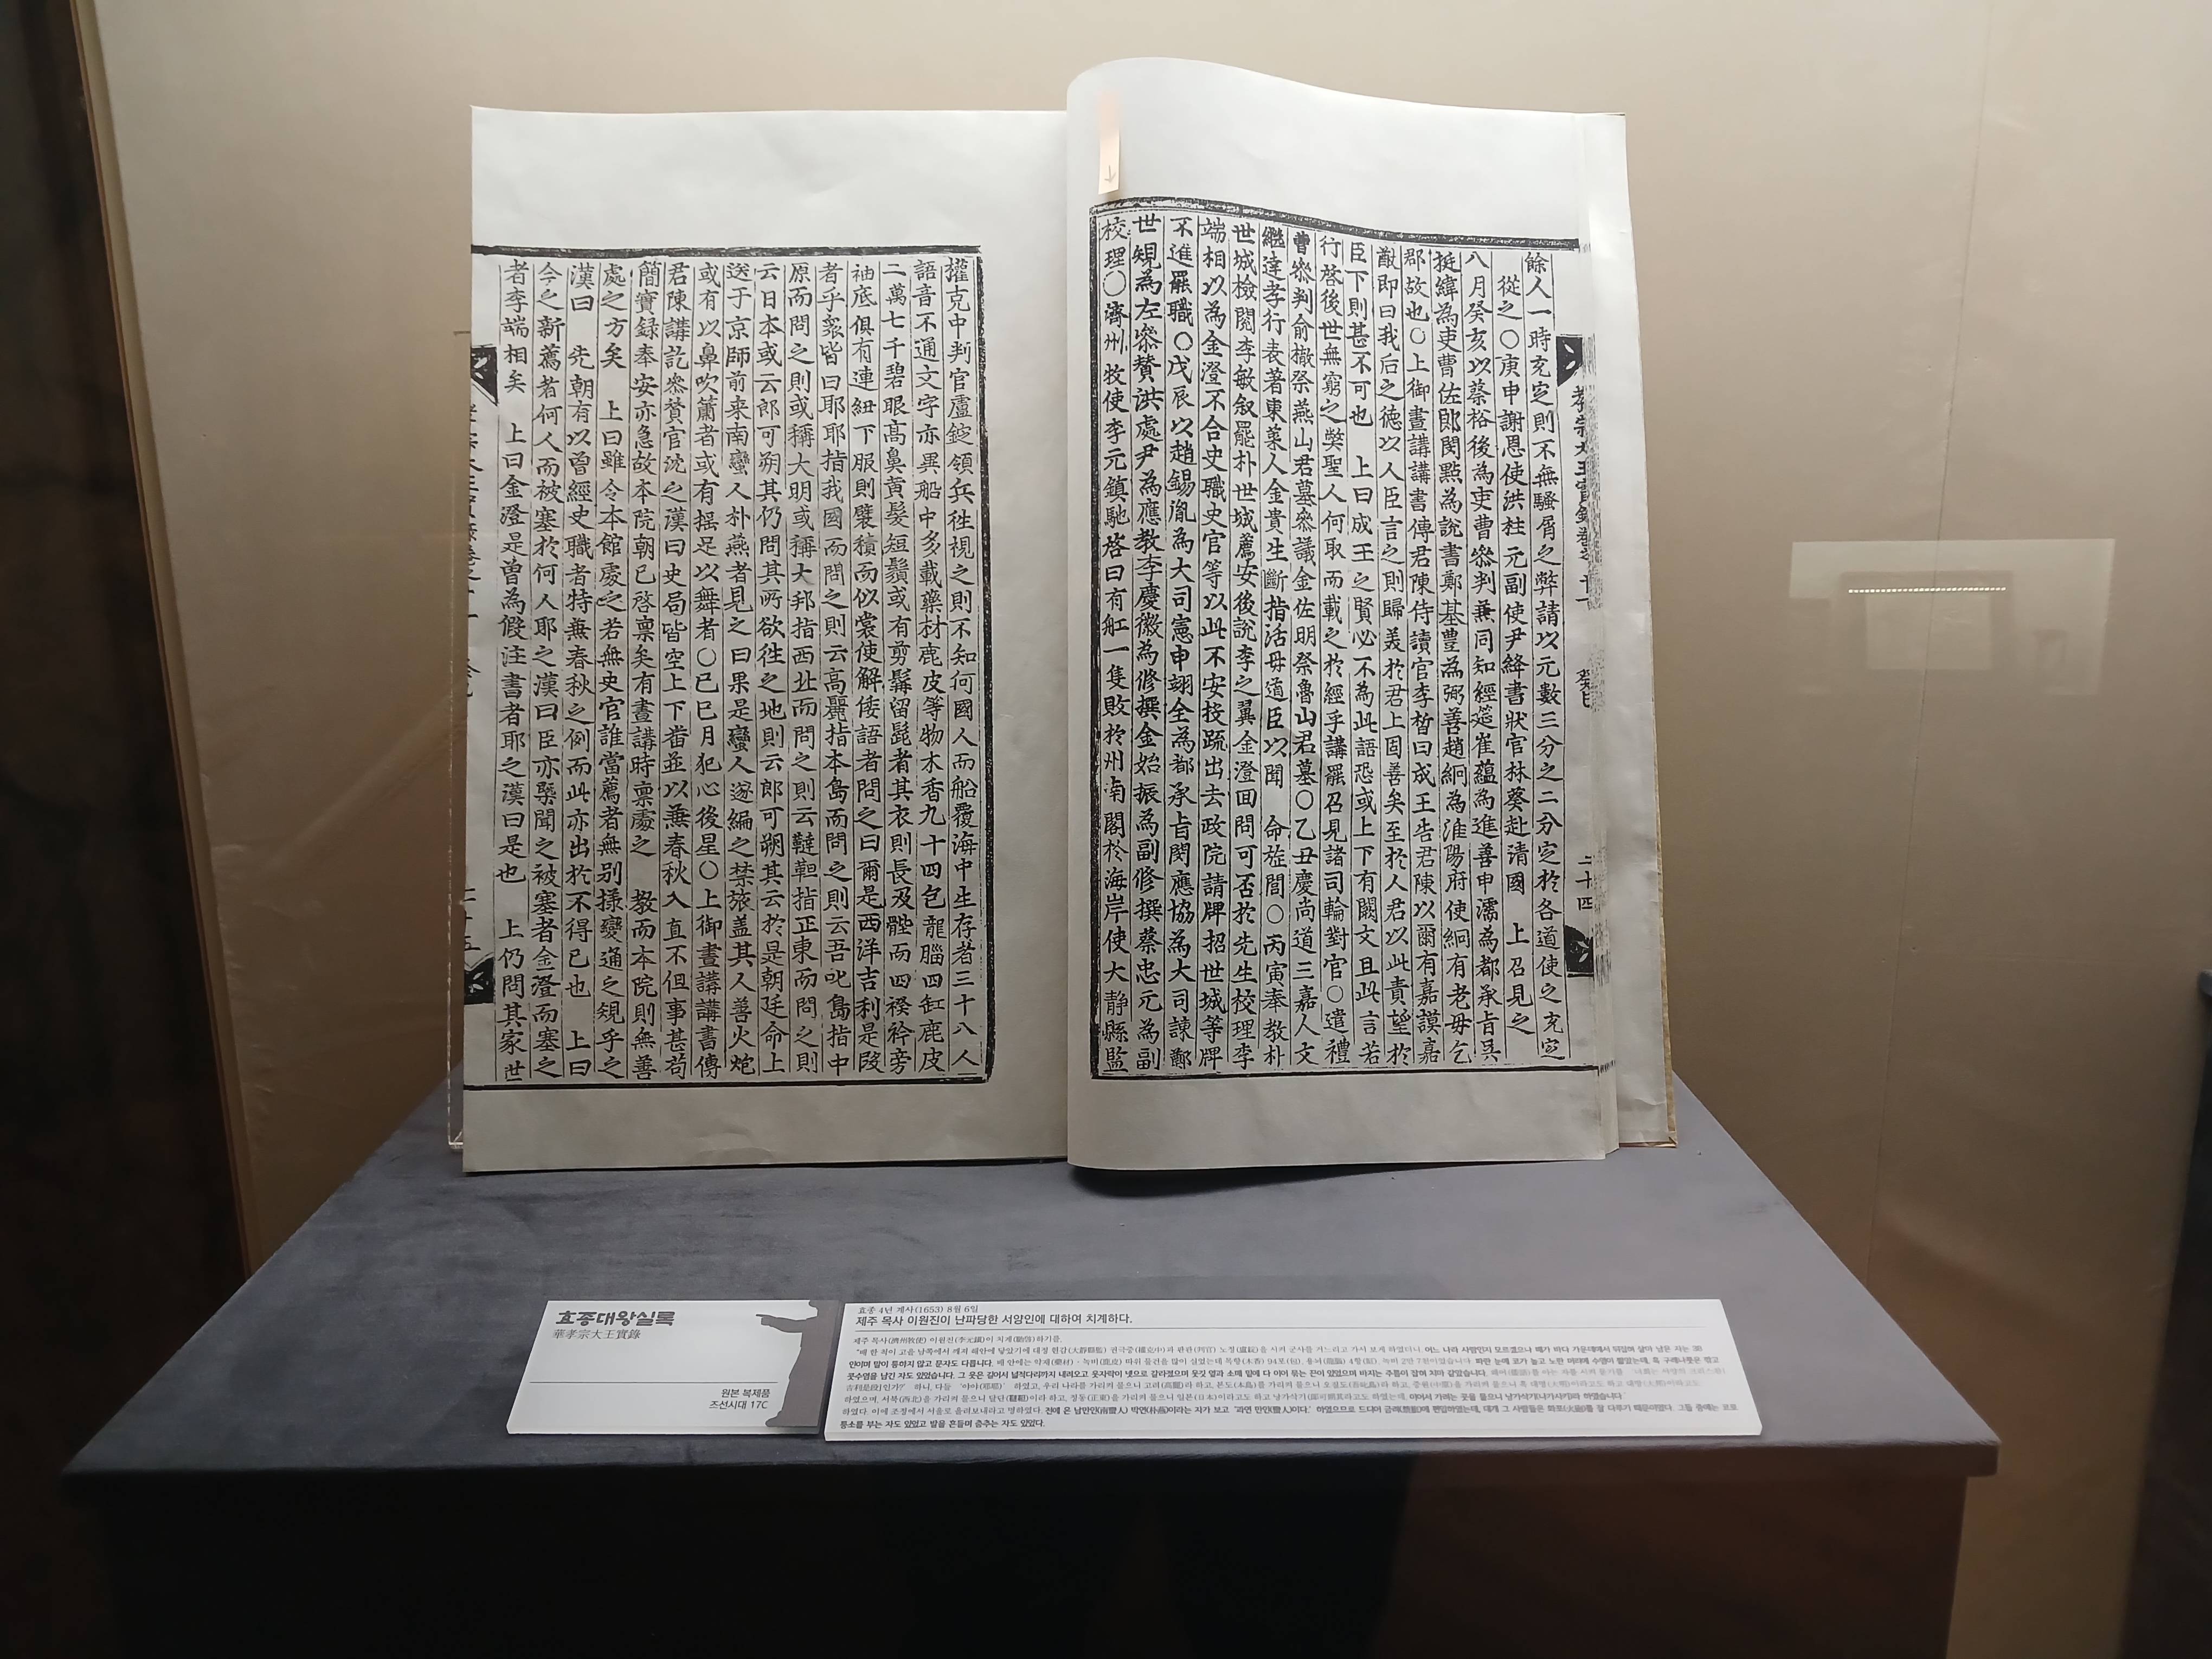 餘人一時充定則不無騷屑之弊請以元數三分之二分定於各道使之充定
從之○庚申謝恩使洪柱元副使尹絳書狀官林葵赴清國 上召見之
八月癸亥以蔡裕後為吏曹參判兼同知經筵崔蘊為進善申濡為都承旨吳
挺緯為吏曹佐郞閔點為說書鄭基豊為弼善趙絅為淮陽府使絅有老母乞
郡故也○上御晝講講書傳君陳侍讀官李晳曰成王告君陳以爾有嘉謨嘉
猷即曰我后之德以人臣言之則歸美於君上固善矣至於人君以此責望於
臣下則甚不可也 上曰成王之賢必不為此語恐或上下有闕文且此言若
行啓後世無窮之獘聖人何取而載之於經乎講罷召見諸司輪對官○遣禮
曹參判俞㯙祭燕山君墓參議金佐明祭魯山君墓○乙丑慶尚道三嘉人文
繼達孝行表著東萊人金貴生斷指活母道臣以聞 命旌閭○丙寅奉敎朴
世城檢閱李敏叙罷朴世城薦安後說李之翼金澄回問可否於先生校理李
端相以為金澄不合史職史官等以此不安投䟽出去政院請牌招世城等牌
不進罷職○戊辰以趙錫胤為大司憲申翊全為都承旨閔應協為大司諫鄭
世䂓為左參贊洪處尹為應教李慶徽為修撰金始振為副修撰蔡忠元為副
校理○濟州牧使李元鎮馳啓曰有舡一隻敗於州南閣於海岸使大静縣監
權克中判官盧錠領兵徃視之則不知何國人而船覆海中生存者三十八人
語音不通文字亦異船中多載藥材鹿皮等物木香九十四包龍腦四缸鹿皮
二萬七千碧眼高鼻黄髮短鬚或有剪髯留髭者其衣則長及髀而四䙆衿旁
袖底俱有連紐下服則襞積而似裳使解倭語者問之曰爾是西洋吉利是段
者乎衆皆曰耶耶指我國而問之則云高麗指本島而問之則云吾叱島指中
原而問之則或稱大明或稱大邦指西北而問之則云韃靼指正東而問之則
云日本或云郎可朔其仍問其所欲徃之地則云郎可朔其云於是朝廷命上
送于京師前来南蠻人朴燕者見之曰果是蠻人遂編之禁旅盖其人善火炮
或有以鼻吹簫者或有揺足以舞者○己巳月犯心後星○上御晝講講書傳
君陳講訖參贊官沈之漢曰史局皆空上下畨並以兼春秋入直不但事甚苟
簡實録奉安亦急故本院朝已啓禀矣有晝講時禀處之 教而本院則無善
處之方矣 上曰雖令本館處之若無史官誰當薦者無別㨾變通之䂓乎之
漢曰 先朝有以曾經史職者特兼春秋之例而此亦出於不得已也 上曰
今之新薦者何人而被塞於何人耶之漢曰臣亦槩聞之被塞者金澄而塞之
者李端相矣 上曰金澄是曾為假注書者耶之漢曰是也 上仍問其家世
효종대왕실록
華孝宗大王實錄
원본 복제품
조선시대 17C
효종 4년 계사(1653) 8월 6일
제주 목사 이원진이 난파당한 서양인에 대하여 치계하다.
제주 목사(濟州牧使) 이원진(李元鎭)이 치계(馳啓)하기를,